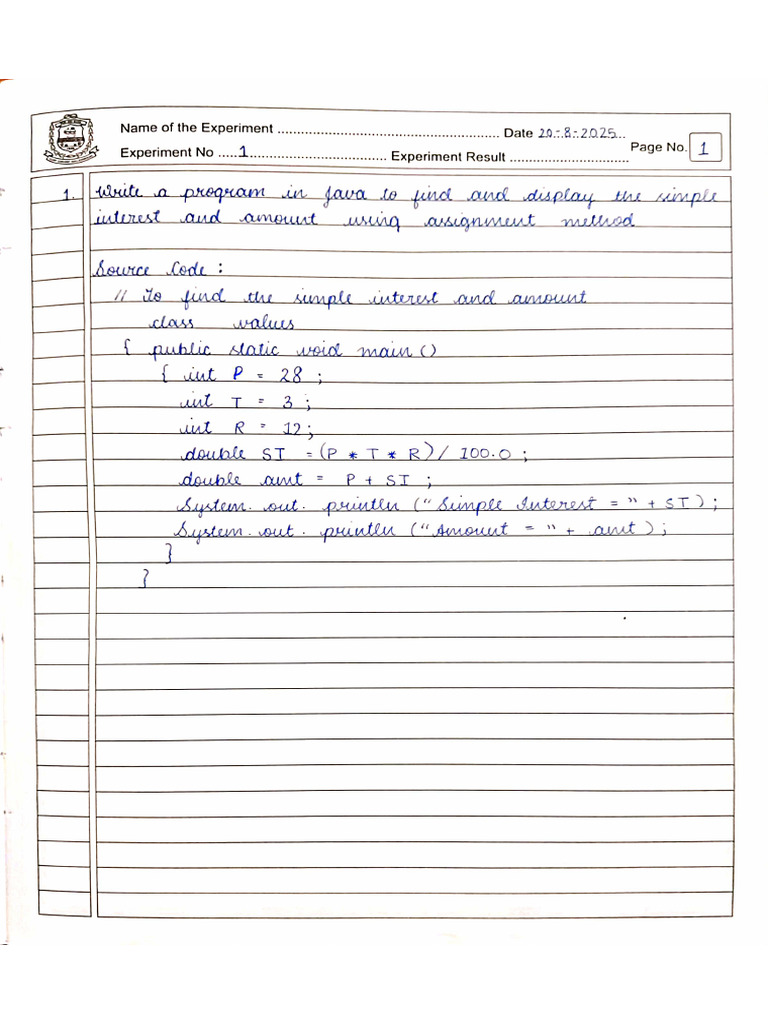 Name of the Experiment ............................................................ Date 20-8-2025..
Experiment No .....1..................................... Experiment Result ................................ Page No. 1
1. Write a program in Java to find and display the simple
interest and amount using assignment method
Source Code :
// To find the simple interest and amount
class values
{ public static void main ()
{ int P = 28 ;
int T = 3 ;
int R = 12;
double SI = (P * T * R) / 100.0 ;
double amt = P + SI ;
System. out. println ("Simple Interest = " + SI) ;
System. out. println ("Amount = " + amt) ;
}
}